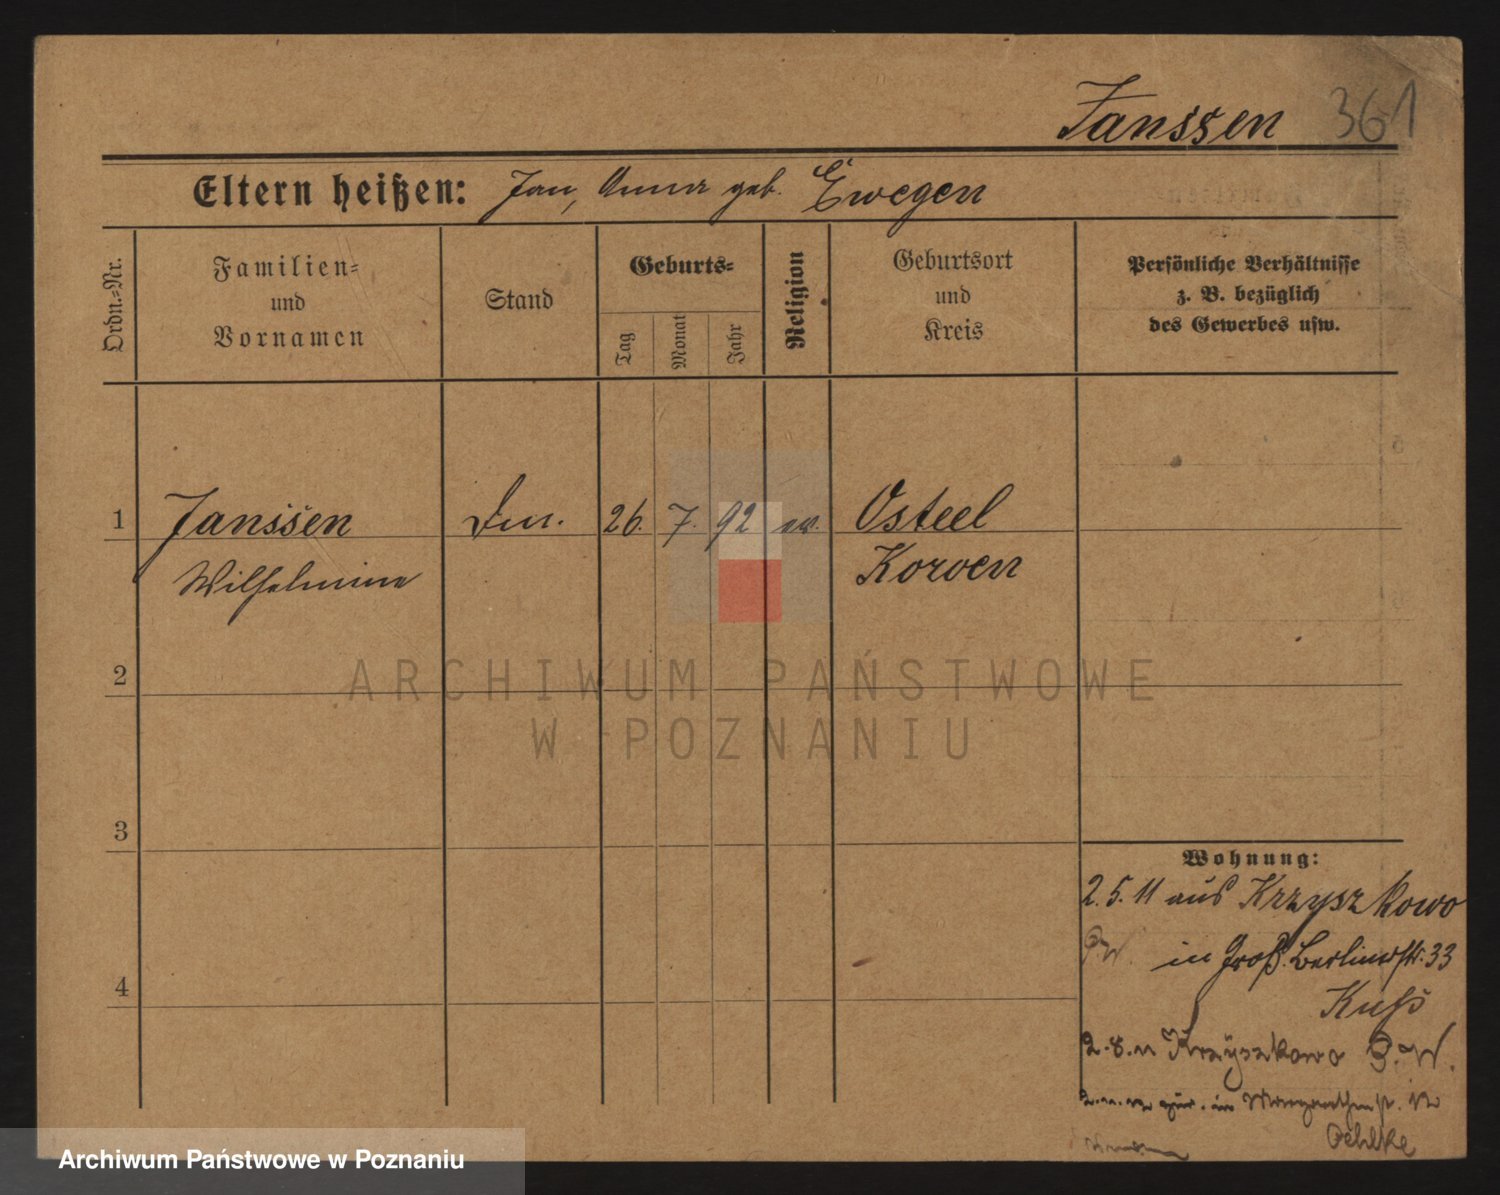 Janssen 361
Eltern heißen: Jan, Anna geb. Ewegen
Ordn.=Nr.
Familien=
und
Vornamen
Stand
Geburts=
Tag
Monat
Jahr
Religion
Geburtsort
und
Kreis
Persönliche Verhältnisse
z. B. bezüglich
des Gewerbes usw.
1 Janssen 26. 7. 92 ev. Osteel
Wilhelmine Korven
2
ARCHIWUM PAŃSTWOWE
W POZNANIU
3
4
Wohnung:
2. 5. 11 aus Krzyszkowo
P.W. in Groß. Berlinerstr. 33
Kuß
2.8.11 Krzyszkowo P.W.
zur. in Margarethenstr. 12
Oehlke
Archiwum Państwowe w Poznaniu